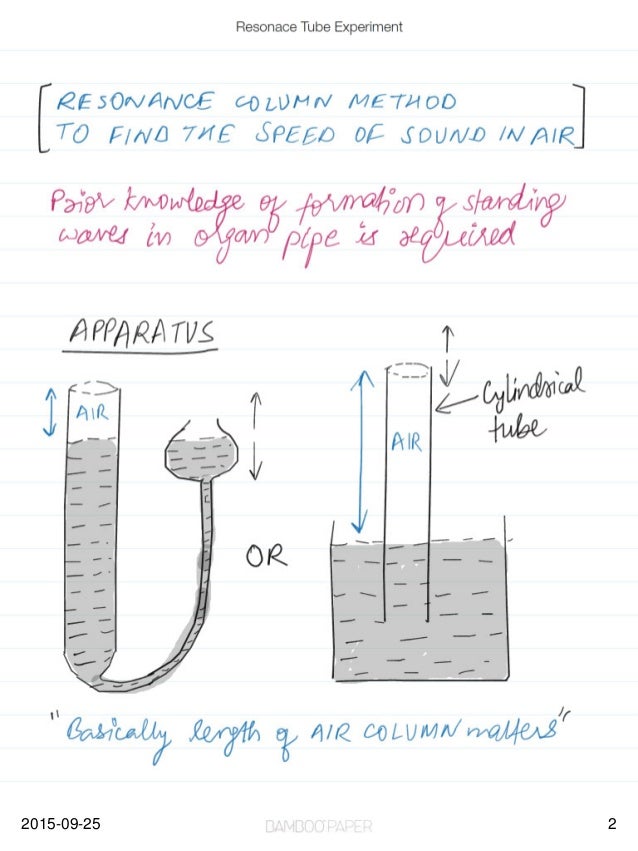 Resonace Tube Experiment
RESONANCE COLUMN METHOD
TO FIND THE SPEED OF SOUND IN AIR
Prior knowledge of formation of standing
waves in organ pipe is required
APPARATUS
AIR
OR
AIR
Cylindrical
tube
"Basically length of AIR COLUMN matters"
2015-09-25
BAMBOO PAPER
2